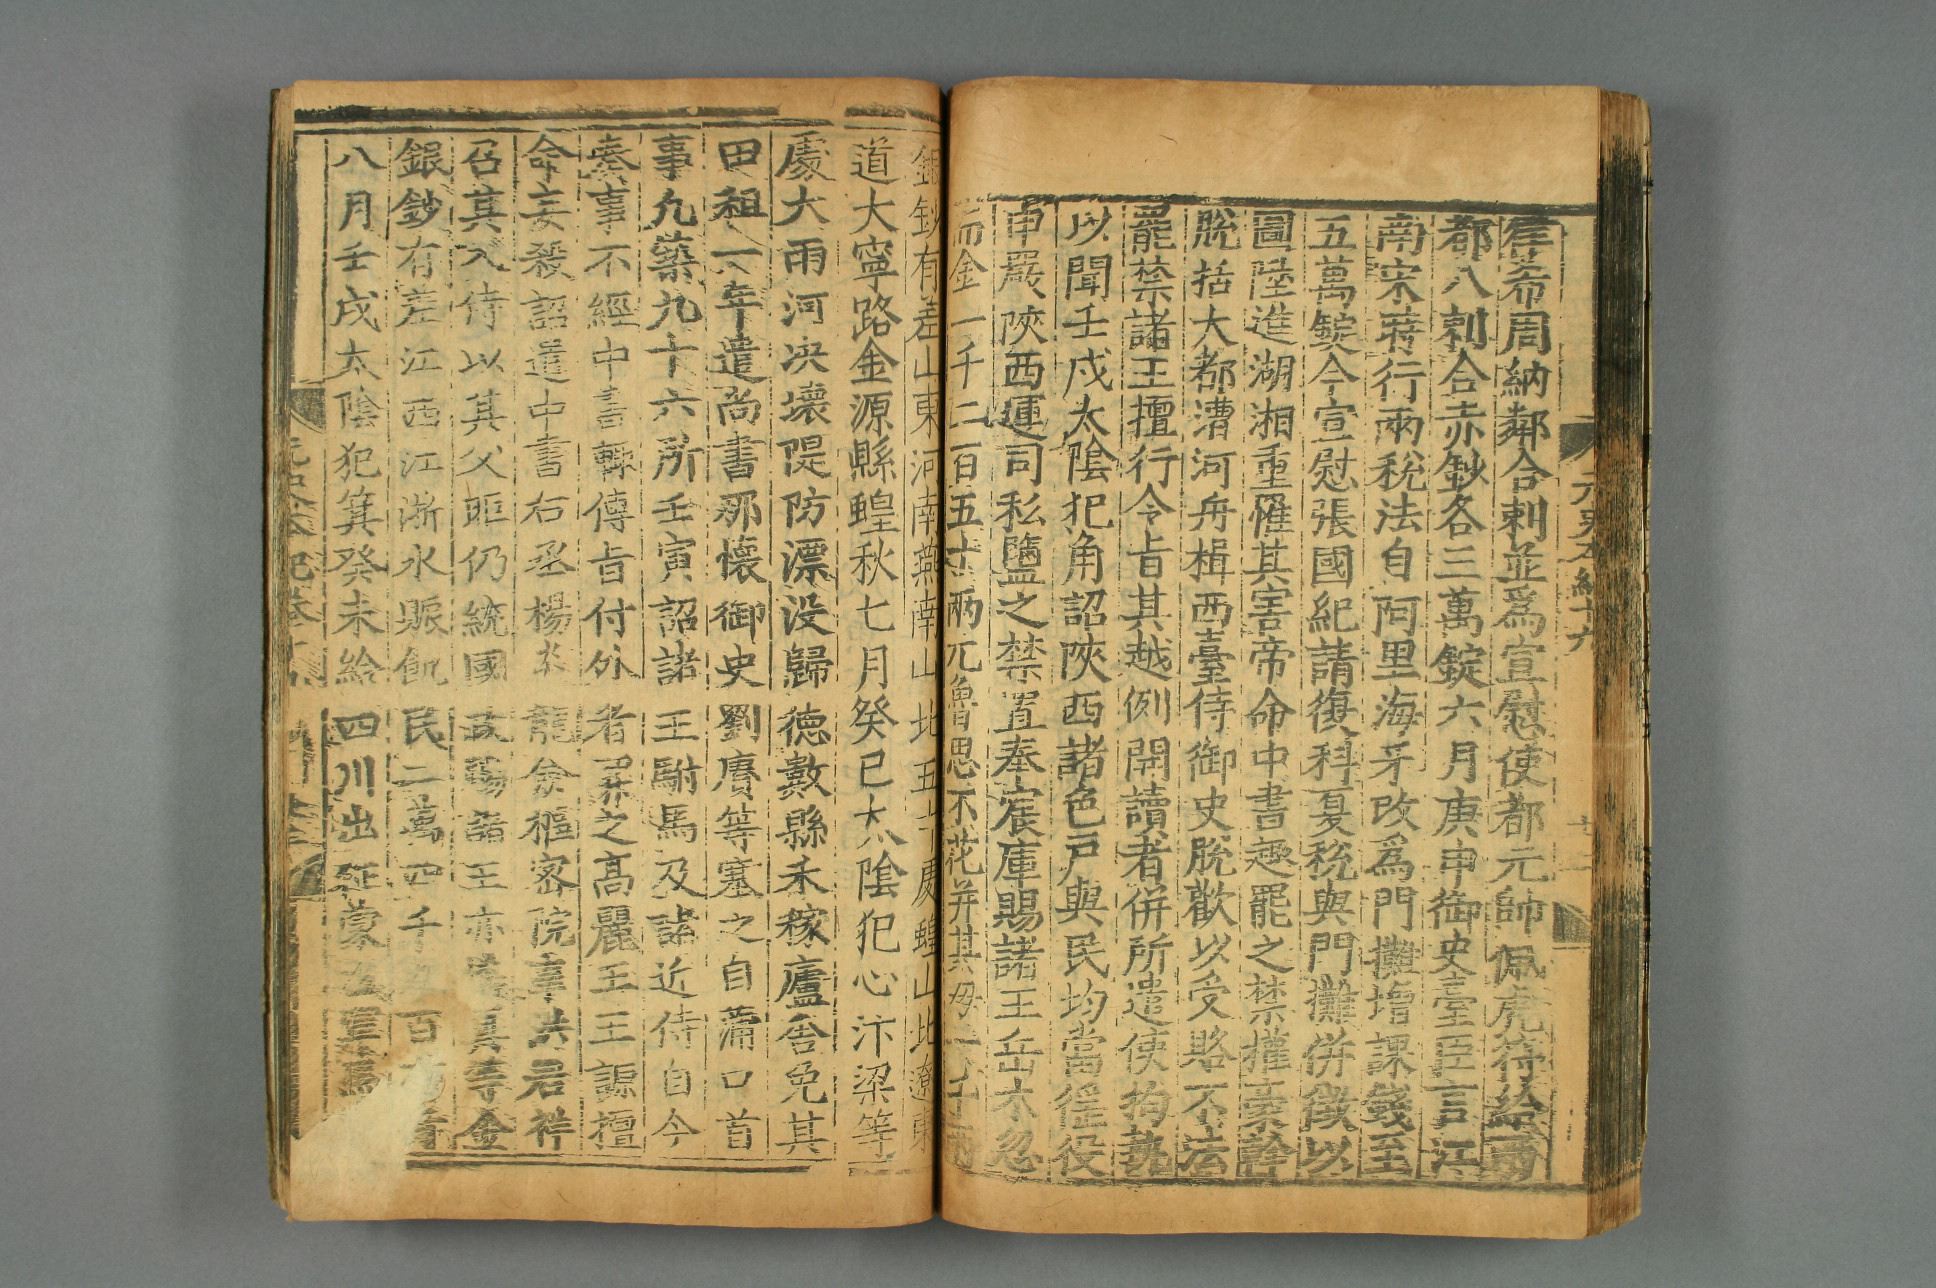 崔希周納鄰合剌並爲宣慰使都元帥佩虎符給兩
都八剌合赤鈔各三萬錠六月庚申御史臺臣言江
南宋時行兩稅法自阿里海牙改爲門攤增課錢至
五萬錠今宣慰張國紀請復科夏稅與門攤併徵以
圖陞進湖湘重罹其害帝命中書趣罷之禁權豪斡
脫括大都漕河舟楫西臺侍御史脫歡以受賂不法
罷禁諸王擅行令旨其越例開讀者併所遣使拘執
以聞壬戌太陰犯角詔陝西諸色戶與民均當徭役
申嚴陝西運司私鹽之禁置奉宸庫賜諸王岳木忽
而金一千二百五十兩兀魯思不花并其母一千兩
銀鈔有差山東河南燕南山北五十處蝗山北遼東
道大寧路金源縣蝗秋七月癸巳太陰犯心汴梁等
處大雨河決壞隄防漂沒歸德數縣禾稼廬舍免其
田租一年遣尚書那懷御史劉賡等塞之自蒲口首
事凡築九十六所壬寅詔諸王駙馬及諸近侍自今
奏事不經中書輒傳旨付外者罪之高麗王王謜擅
命妄殺詔遣中書右丞楊炎龍僉樞密院事洪君祥
召其入侍以其父昛仍統國政賜諸王亦憐真等金
銀鈔有差江西江浙水賑飢民二萬四千九百有
八月壬戌太陰犯箕癸未給四川出征蒙古軍馬
元史本紀十九